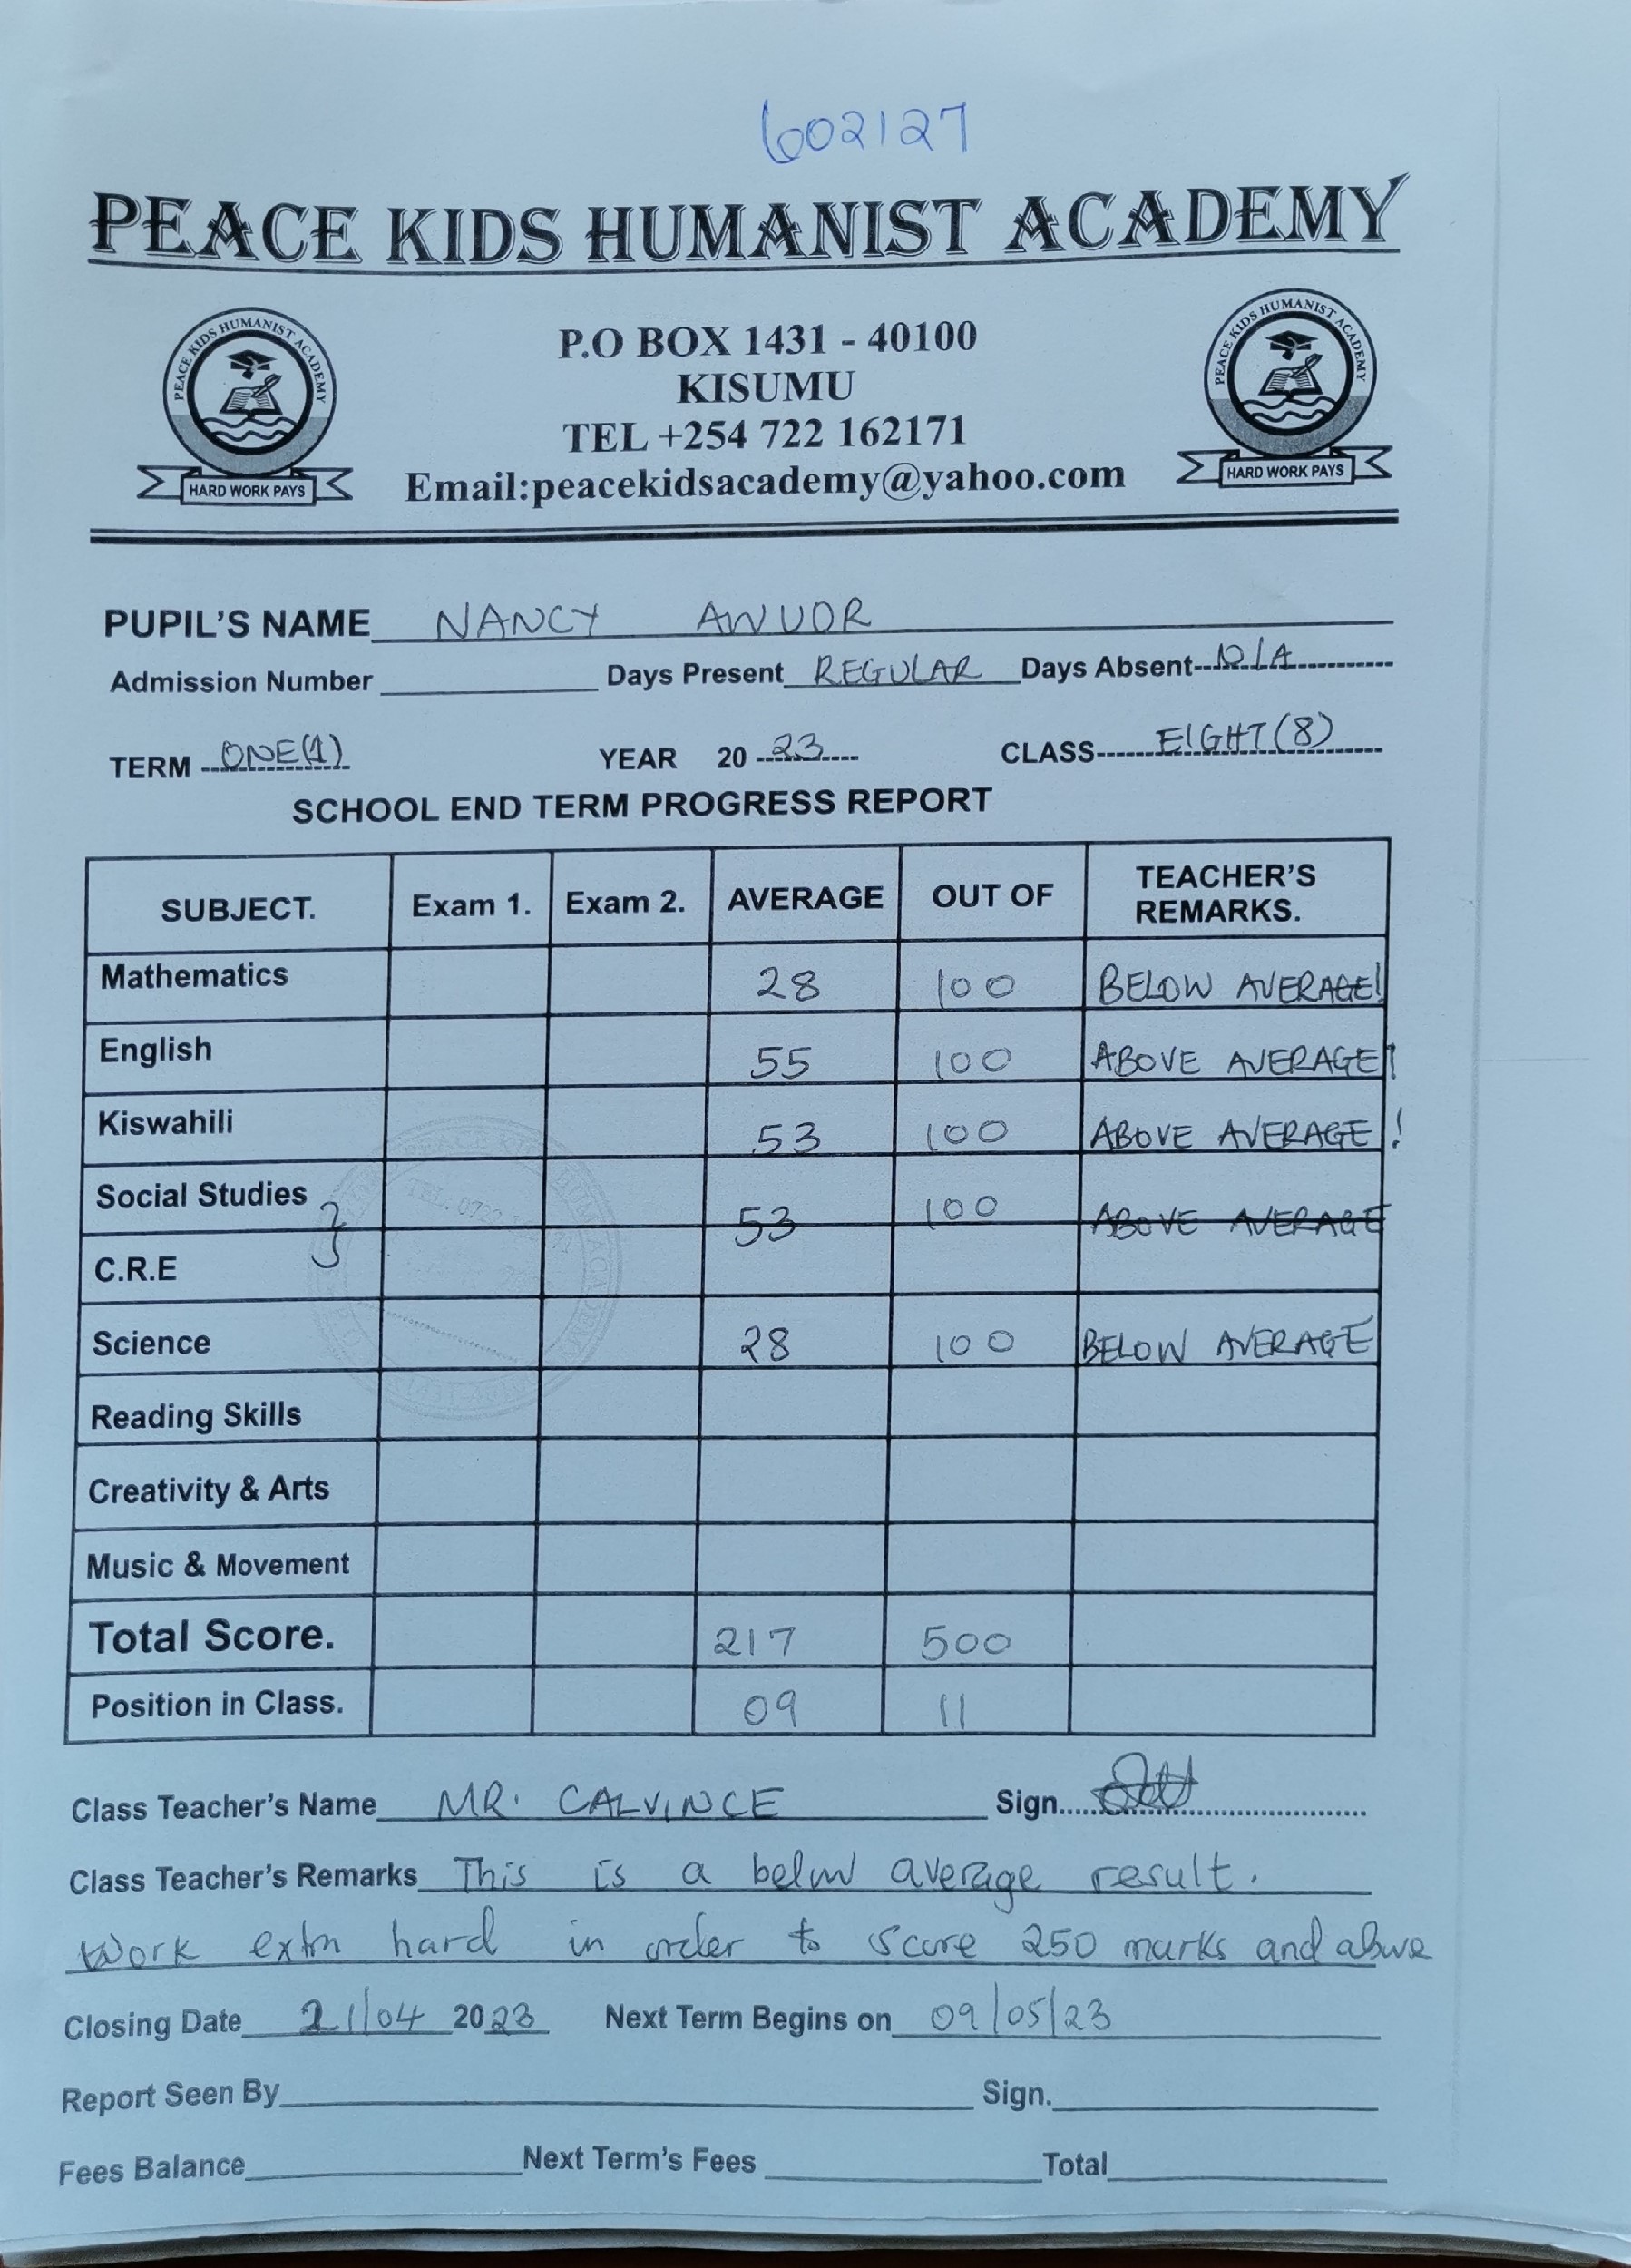 602127
PEACE KIDS HUMANIST ACADEMY
PEACE KIDS HUMANIST ACADEMY
HARD WORK PAYS
P.O BOX 1431 - 40100
KISUMU
TEL +254 722 162171
Email:peacekidsacademy@yahoo.com
PEACE KIDS HUMANIST ACADEMY
HARD WORK PAYS
PUPIL'S NAME NANCY AWUOR
Admission Number Days Present REGULAR Days Absent N/A
TERM ONE(1) YEAR 2023 CLASS EIGHT(8)
SCHOOL END TERM PROGRESS REPORT
SUBJECT. Exam 1. Exam 2. AVERAGE OUT OF TEACHER'S REMARKS.
Mathematics 28 100 BELOW AVERAGE!
English 55 100 ABOVE AVERAGE!
Kiswahili 53 100 ABOVE AVERAGE!
Social Studies } 53 100 ABOVE AVERAGE
C.R.E
Science 28 100 BELOW AVERAGE
Reading Skills
Creativity & Arts
Music & Movement
Total Score. 217 500
Position in Class. 09 11
Class Teacher's Name MR. CALVINCE Sign
Class Teacher's Remarks This is a below average result.
Work extra hard in order to score 250 marks and above
Closing Date 21/04 2023 Next Term Begins on 09/05/23
Report Seen By Sign.
Fees Balance Next Term's Fees Total